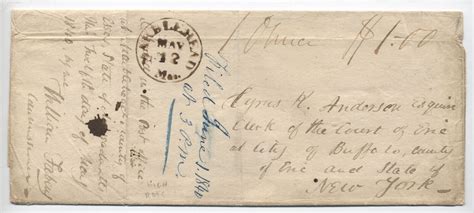 1 Ounce $1.00
MARBLEHEAD
MAY
12
Mas.
Filed June 1. 1840
at 3 P.M.
Cyrus K. Anderson Esquire
Clerk of the Court of Erie
at City of Buffalo, county
of Erie and State of
New York
in the Post Office
at Marblehead, county of
Essex, State of
this Twelfth day of May
1840 by me
William